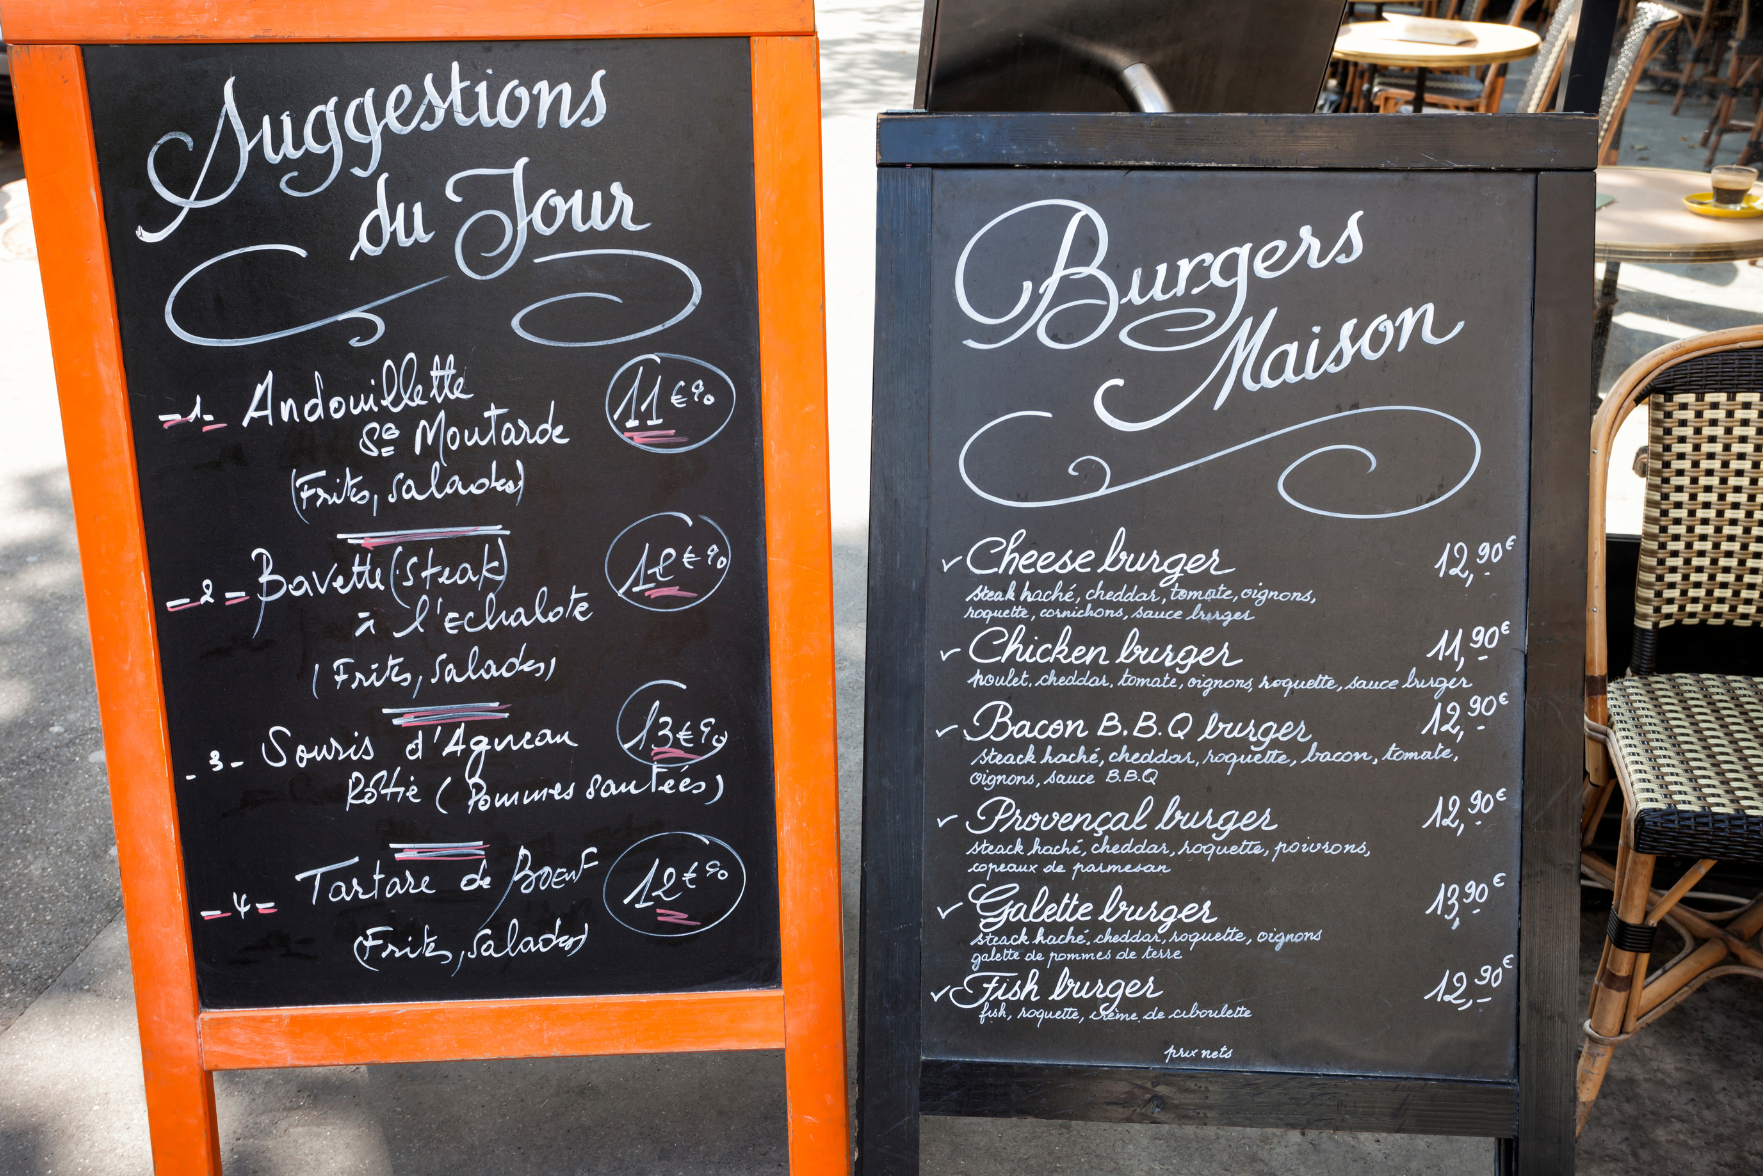 Suggestions
du Jour
-1- Andouillette 11€90
Sce Moutarde
(Frites, Salades)
-2- Bavette (steak) 12€90
à l'Echalote
(Frites, Salades)
-3- Souris d'Agneau 13€90
Rôtie (Pommes Sautées)
-4- Tartare de Boeuf 12€90
(Frites, Salades)
Burgers
Maison
✓ Cheese burger 12,90€
steak haché, cheddar, tomate, oignons,
roquette, cornichons, sauce burger
✓ Chicken burger 11,90€
poulet, cheddar, tomate, oignons, roquette, sauce burger
✓ Bacon B.B.Q burger 12,90€
steack haché, cheddar, roquette, bacon, tomate,
oignons, sauce B.B.Q
✓ Provençal burger 12,90€
steack haché, cheddar, roquette, poivrons,
copeaux de parmesan
✓ Galette burger 13,90€
steack haché, cheddar, roquette, oignons
galette de pommes de terre
✓ Fish burger 12,90€
fish, roquette, crème de ciboulette
prix nets